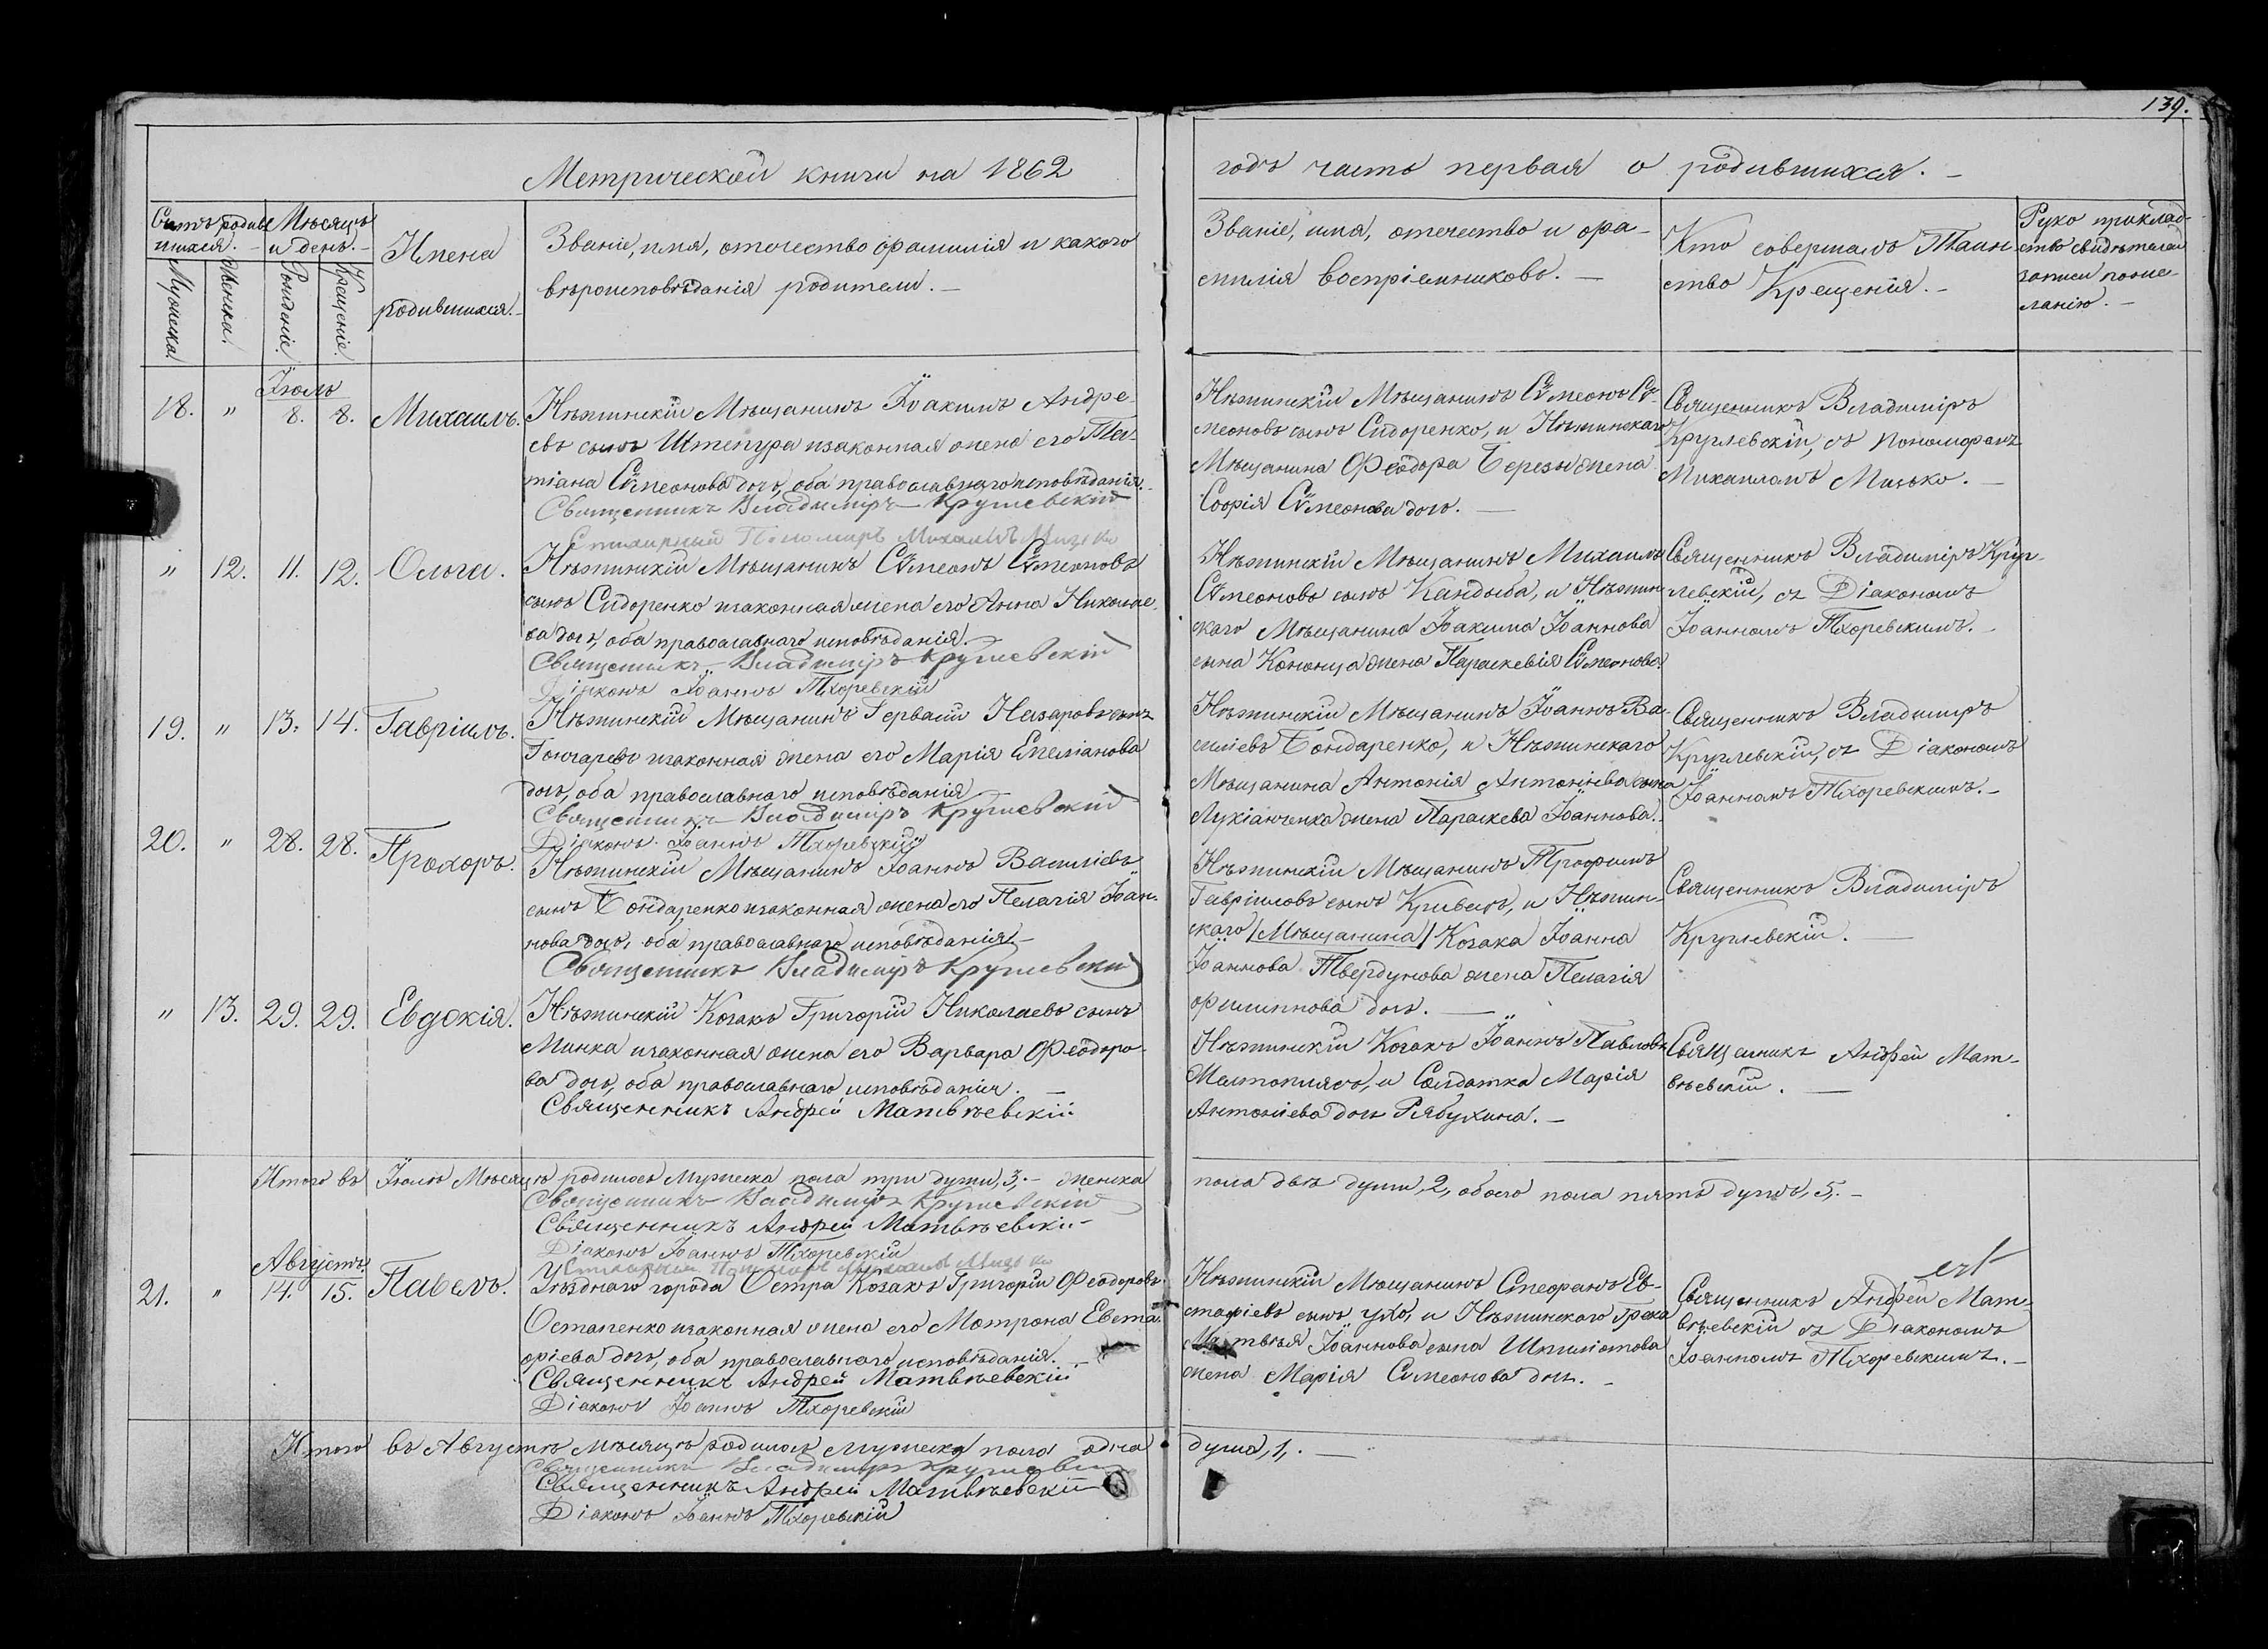 139.
Метрической книги на 1862
годъ часть первая о родившихся. –
Счетъ родив-
шихся. –
Мѣсяцъ
и день. –
Мужеска.
Женска.
Рожденіе.
Крещеніе.
Имена
родившихся. –
Званіе, имя, отечество фамилія и какого
вѣроисповѣданія родители. –
Званіе, имя, отечество и фа-
милія воспріемниковъ. –
Кто совершалъ Таин-
ство Крещенія. –
Руко приклад-
ство свидѣтелей
записи по же-
ланію. –
Іюль
18. „ 8. 8. Михаилъ.
Нѣжинскій Мѣщанинъ Іоакимъ Андре-
евъ сынъ Штепура изаконная жена его Та-
тіана Сѵмеонова дочь, оба православнаго исповѣданія. –
Священникъ Владиміръ Круглевскій
Стихарный Пономарь Михаилъ Мицько
Нѣжинскій Мѣщанинъ Сѵмеонъ Сѵ-
меоновъ сынъ Сидоренко, и Нѣжинскаго
Мѣщанина Феодора Березы жена
Софія Сѵмеонова дочь. –
Священникъ Владиміръ
Круглевскій, съ Пономаремъ
Михаиломъ Мицько. –
„ 12. 11. 12. Ольга.
Нѣжинскій Мѣщанинъ Сѵмеонъ Сѵмеоновъ
сынъ Сидоренко изаконная жена его Анна Николае-
ва дочь, оба православнаго исповѣданія. –
Священникъ Владиміръ Круглевскій
Діаконъ Іоаннъ Тхоревскій
Нѣжинскій Мѣщанинъ Михаилъ
Сѵмеоновъ сынъ Кандыба, и Нѣжин-
скаго Мѣщанина Іоакима Іоаннова
сына Кононца жена Параскевія Сѵмеонова.
Священникъ Владиміръ Круг-
левскій, съ Діакономъ
Іоанномъ Тхоревскимъ. –
19. „ 13. 14. Гавріилъ.
Нѣжинскій Мѣщанинъ Гервасій Назаровъ сынъ
Гончаревъ изаконная жена его Марія Емеліанова
дочь, оба православнаго исповѣданія
Священникъ Владиміръ Круглевскій
Діаконъ Іоаннъ Тхоревскій
Нѣжинскій Мѣщанинъ Іоаннъ Ва-
силіевъ Бондаренко, и Нѣжинскаго
Мѣщанина Антонія Антоніева сына
Лукіанченка жена Параскева Іоаннова.
Священникъ Владиміръ
Круглевскій, съ Діакономъ
Іоанномъ Тхоревскимъ. –
20. „ 28. 28. Прохоръ.
Нѣжинскій Мѣщанинъ Іоаннъ Василіевъ
сынъ Бондаренко изаконная жена его Пелагія Іоан-
нова дочь, оба православнаго исповѣданія –
Священникъ Владиміръ Круглевскій
Нѣжинскій Мѣщанинъ Трофимъ
Гавріиловъ сынъ Кривецъ, и Нѣжин-
скаго /Мѣщанина/ Козака Іоанна
Іоаннова Твердунова жена Пелагія
Филиппова дочь. –
Священникъ Владиміръ
Круглевскій. –
„ 13. 29. 29. Евдокія.
Нѣжинскій Козакъ Григорій Николаевъ сынъ
Минка изаконная жена его Варвара Феодоро-
ва дочь, оба православнаго исповѣданія. –
Священникъ Андрей Матвѣевскій
Нѣжинскій Козакъ Іоаннъ Павловъ
и Солдатка Марія
Антоніева дочь Рябухина. –
Священникъ Андрей Мат-
вѣевскій. –
Итого въ Іюлѣ Мѣсяцѣ родилось Мужеска пола три души, 3, – женска
пола двѣ души, 2, обоего пола пять душъ, 5. –
Священникъ Владиміръ Круглевскій
Священникъ Андрей Матвѣевскій –
Діаконъ Іоаннъ Тхоревскій
Стихарный Пономарь Михаилъ Мицько
Августъ.
21. „ 14. 15. Павелъ.
Уѣзднаго города Остра Козакъ Григорій Феодоровъ
Остапенко изаконная жена его Матрона Евста-
фіева дочь, оба православнаго исповѣданія. –
Священникъ Андрей Матвѣевскій
Діаконъ Іоаннъ Тхоревскій
Нѣжинскій Мѣщанинъ Стефанъ Ев-
стафіевъ сынъ Ухо, и Нѣжинскаго Грека
Матвѣя Іоаннова сына
жена Марія Симеонова дочь. –
Священникъ Андрей Мат-
вѣевскій съ Діакономъ
Іоанномъ Тхоревскимъ. –
Итого въ Августѣ мѣсяцѣ родилось мужеска пола одна
душа, 1, . –
Священникъ Владиміръ Круглевскій
Священникъ Андрей Матвѣевскій
Діаконъ Іоаннъ Тхоревскій